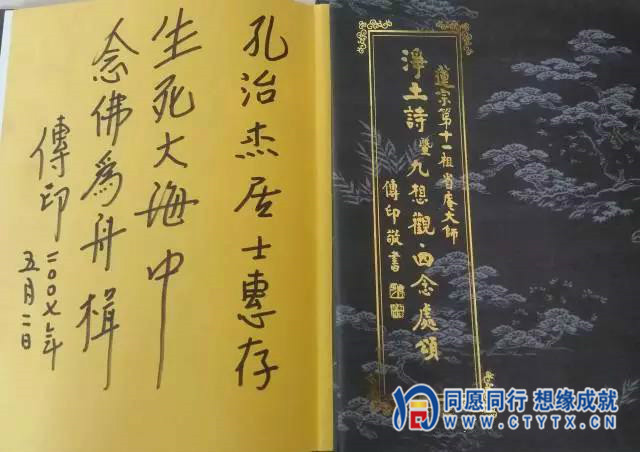 孔治杰居士惠存
生死大海中
念佛為舟楫
傳印
二00七年
五月二日
蓮宗第十一祖省庵大師
淨土詩暨九想觀·四念處頌
傳印敬書
同愿同行 想缘成就
WWW.CTYTX.CN